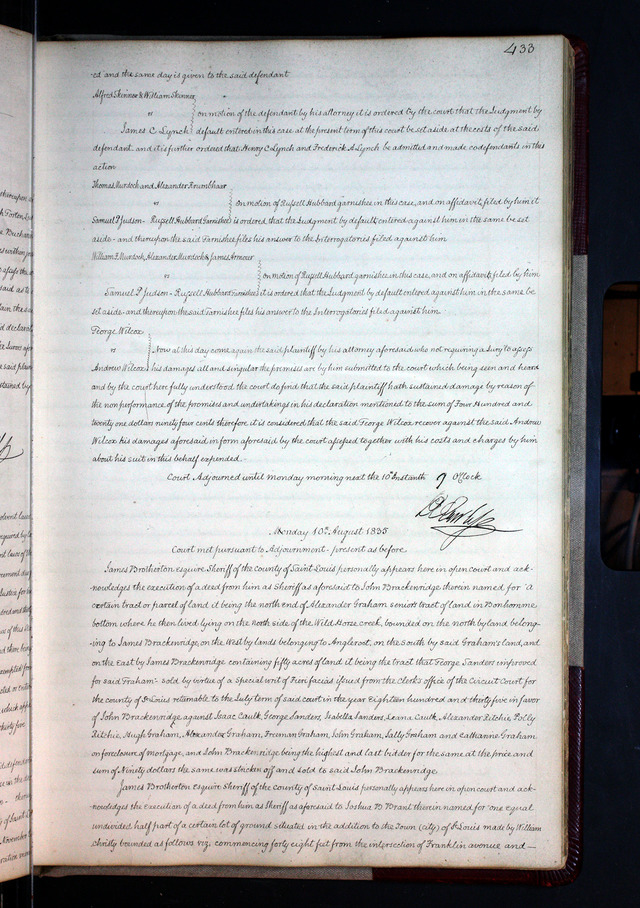 433
ed and the same day is given to the said defendant
Alfred Skinner & William Skinner
vs
on motion of the defendant by his attorney it is ordered by the court that the Judgment by
James C Lynch default entered in this case at the present term of this court be set aside at the costs of the said
defendant and it is further ordered that Henry C Lynch and Frederick J Lynch be admitted and made codefendants in this
action
Thomas Murdock and Alexander Krumbhaar
vs
on motion of Russell Hubbard garnishee in this case, and on affidavit filed by him it
Samuel P Judson - Russell Hubbard Garnishee is ordered that the Judgment by default entered against him in the same be set
aside - and thereupon the said Garnishee files his answer to the Interrogatories filed against him
William F Murdock, Alexander Murdock & James Armour
vs
on motion of Russell Hubbard garnishee in this case, and on affidavit filed by him
Samuel P Judson - Russell Hubbard Garnishee it is ordered that the Judgment by default entered against him in the same be
set aside - and thereupon the said Garnishee files his answer to the Interrogatories filed against him
George Wilcox
vs
Now at this day come again the said plaintiff by his attorney aforesaid who not requiring a Jury to assess
Andrew Wilcox his damages all and singular the premises are by him submitted to the court which being seen and heard
and by the court here fully understood the court do find that the said plaintiff hath sustained damage by reason of
the non performance of the promises and undertakings in his declaration mentioned to the sum of Four Hundred and
twenty one dollars ninety four cents therefore it is considered that the said George Wilcox recover against the said Andrew
Wilcox his damages aforesaid in form aforesaid by the court assessed together with his costs and charges by him
about his suit in this behalf expended
Court Adjourned until Monday morning next the 10th Instant 9 O'clock
Monday 10th August 1835
Court met pursuant to Adjournment - present as before
James Brotherton esquire Sheriff of the county of Saint Louis personally appears here in open court and ack-
nowledges the execution of a deed from him as Sheriff as aforesaid to John Brackenridge therein named for "a
certain tract or parcel of land it being the north end of Alexander Graham senior's tract of land in Bonhomme
bottom where he then lived lying on the North side of the Wild Horse creek, bounded on the north by land belong-
ing to James Brackenridge, on the West by lands belonging to Angleroot, on the south by said Graham's land, and
on the East by James Brackenridge containing fifty acres of land it being the tract that George Sanders improved
for said Graham" - sold by virtue of a Special writ of Fieri facias issued from the Clerk's office of the Circuit Court for
the county of St Louis returnable to the July term of said court in the year Eighteen hundred and thirty five in favor
of John Brackenridge against Isaac Caulk, George Sanders, Isabella Sanders, Leana Caulk, Alexander Ritchie, Polly
Ritchie, Hugh Graham, Alexander Graham, Freeman Graham, John Graham, Sally Graham and Catharine Graham
on foreclosure of mortgage, and John Brackenridge being the highest and last bidder for the same at the price and
sum of Ninety dollars the same was stricken off and sold to said John Brackenridge.
James Brotherton esquire Sheriff of the county of saint Louis personally appears here in open court and ack-
nowledges the execution of a deed from him as Sheriff as aforesaid to Joshua B Brant therein named for "one equal
undivided half part of a certain lot of ground situated in the addition to the Town (city) of St Louis made by William
christy bounded as follows viz, commencing forty eight feet from the intersection of Franklin avenue and